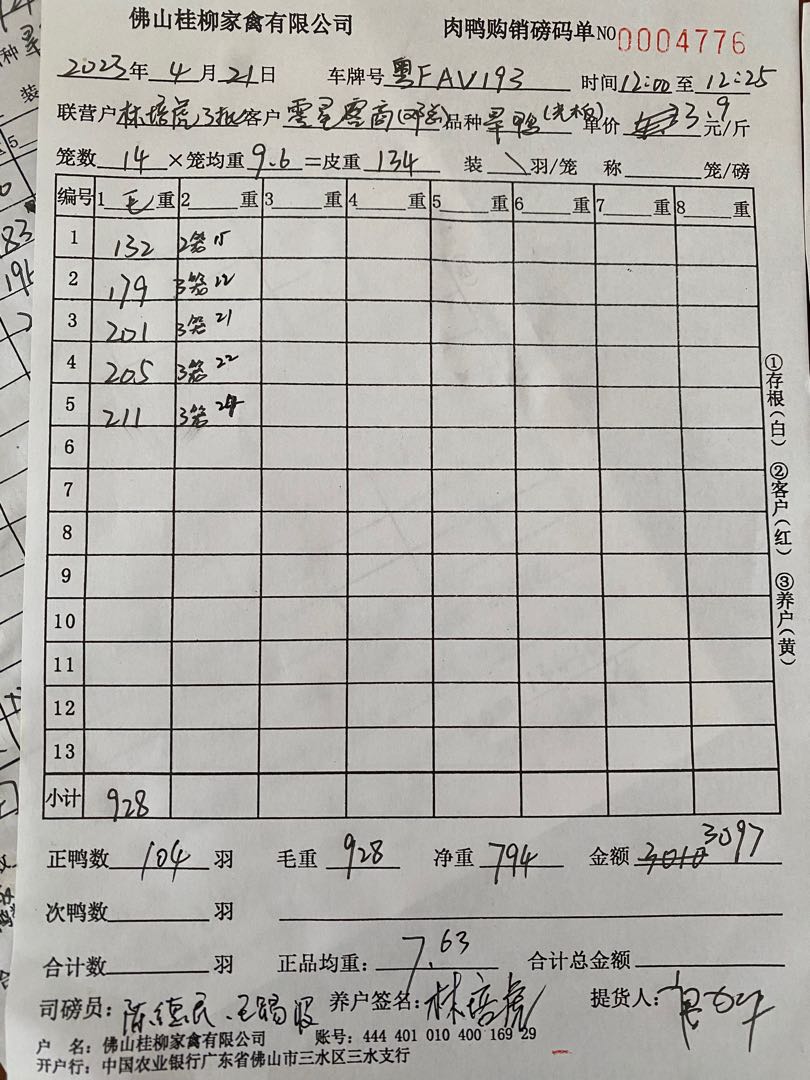 佛山桂柳家禽有限公司 肉鸭购销磅码单NO 0004776
2023年 4月21日 车牌号 粤FAV193 时间12:00至 12:25
联营户 林培虎3批 客户 品种 旱鸭 单价 3.9 元/斤
笼数 14 ×笼均重 9.6 =皮重 134 装 \ 羽/笼 称 笼/磅
编号 1 毛 重 2 重 3 重 4 重 5 重 6 重 7 重 8 重
1 132 2笼 15
2 179 3笼 22
3 201 3笼 21
4 205 3笼 22
5 211 3笼 24
6
7
8
9
10
11
12
13
小计 928
正鸭数 104 羽 毛重 928 净重 794 金额 3010 3097
次鸭数 羽
合计数 羽 正品均重: 7.63 合计总金额
司磅员: 养户签名: 林培虎 提货人:
户 名: 佛山桂柳家禽有限公司 账号: 444 401 010 400 169 29
开户行: 中国农业银行广东省佛山市三水区三水支行
①存根(白) ②客户(红) ③养户(黄)